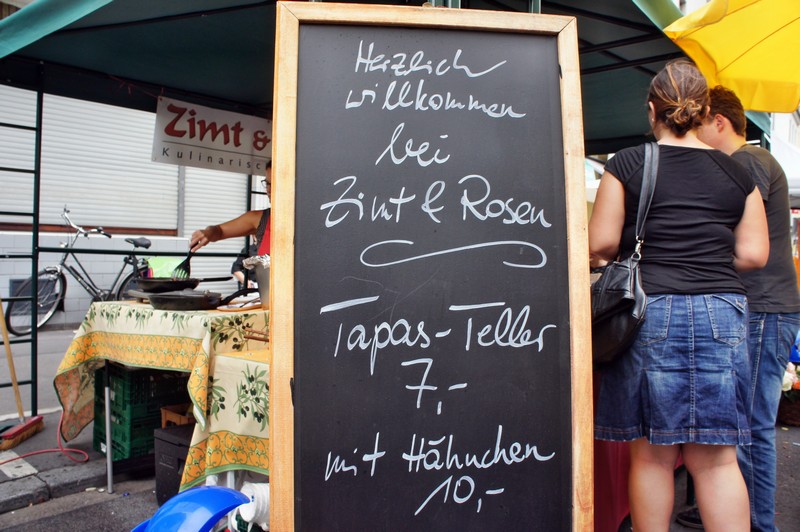 Herzlich
willkommen
bei
Zimt & Rosen
Tapas-Teller
7,-
mit Hähnchen
10,-
Zimt &
Kulinarisch